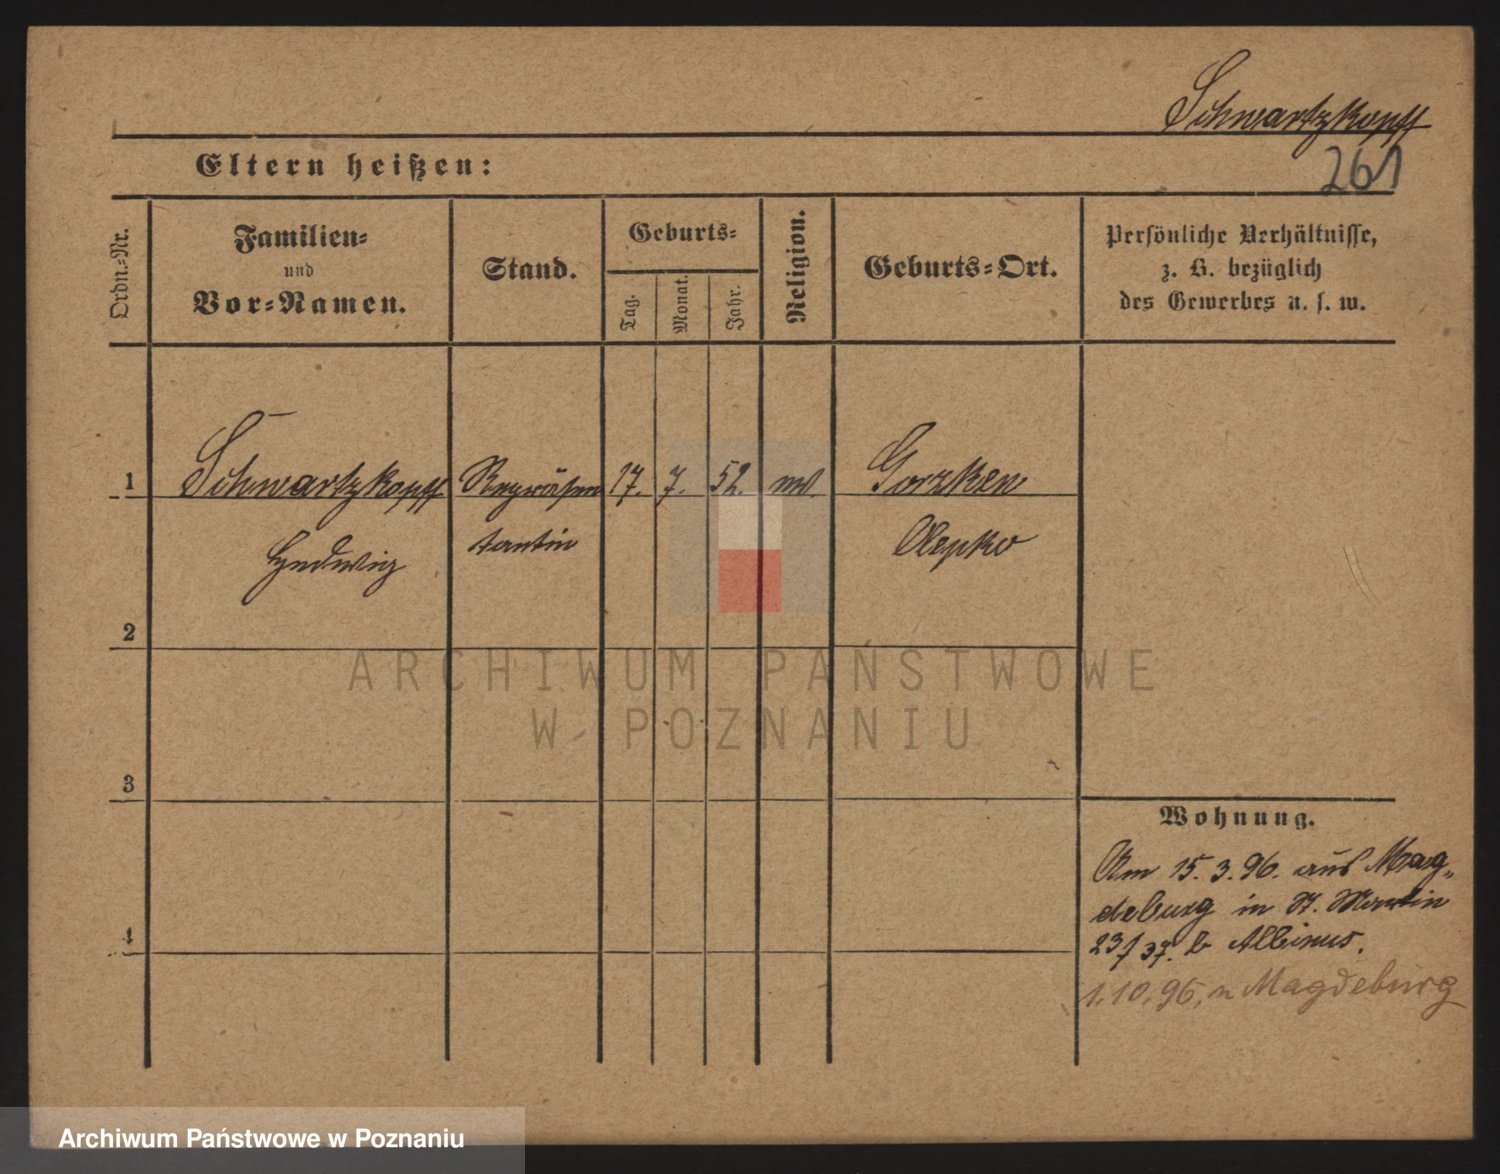 Schwartzkopff
261
Eltern heißen:
Ordn.-Nr.
Familien-
und
Vor-Namen.
Stand.
Geburts-
Tag.
Monat.
Jahr.
Religion.
Geburts-Ort.
Persönliche Verhältnisse,
z. B. bezüglich
des Gewerbes u. s. w.
1 Schwartzkopff Repräsen 17. 7. 52. Gorzken
Hedwig tantin
2
3
4
Wohnung.
Am 15.3.96. aus Mag-
deburg in St. Martin
23/37. b Albinus.
1.10.96, n Magdeburg
ARCHIWUM PAŃSTWOWE
W POZNANIU
Archiwum Państwowe w Poznaniu